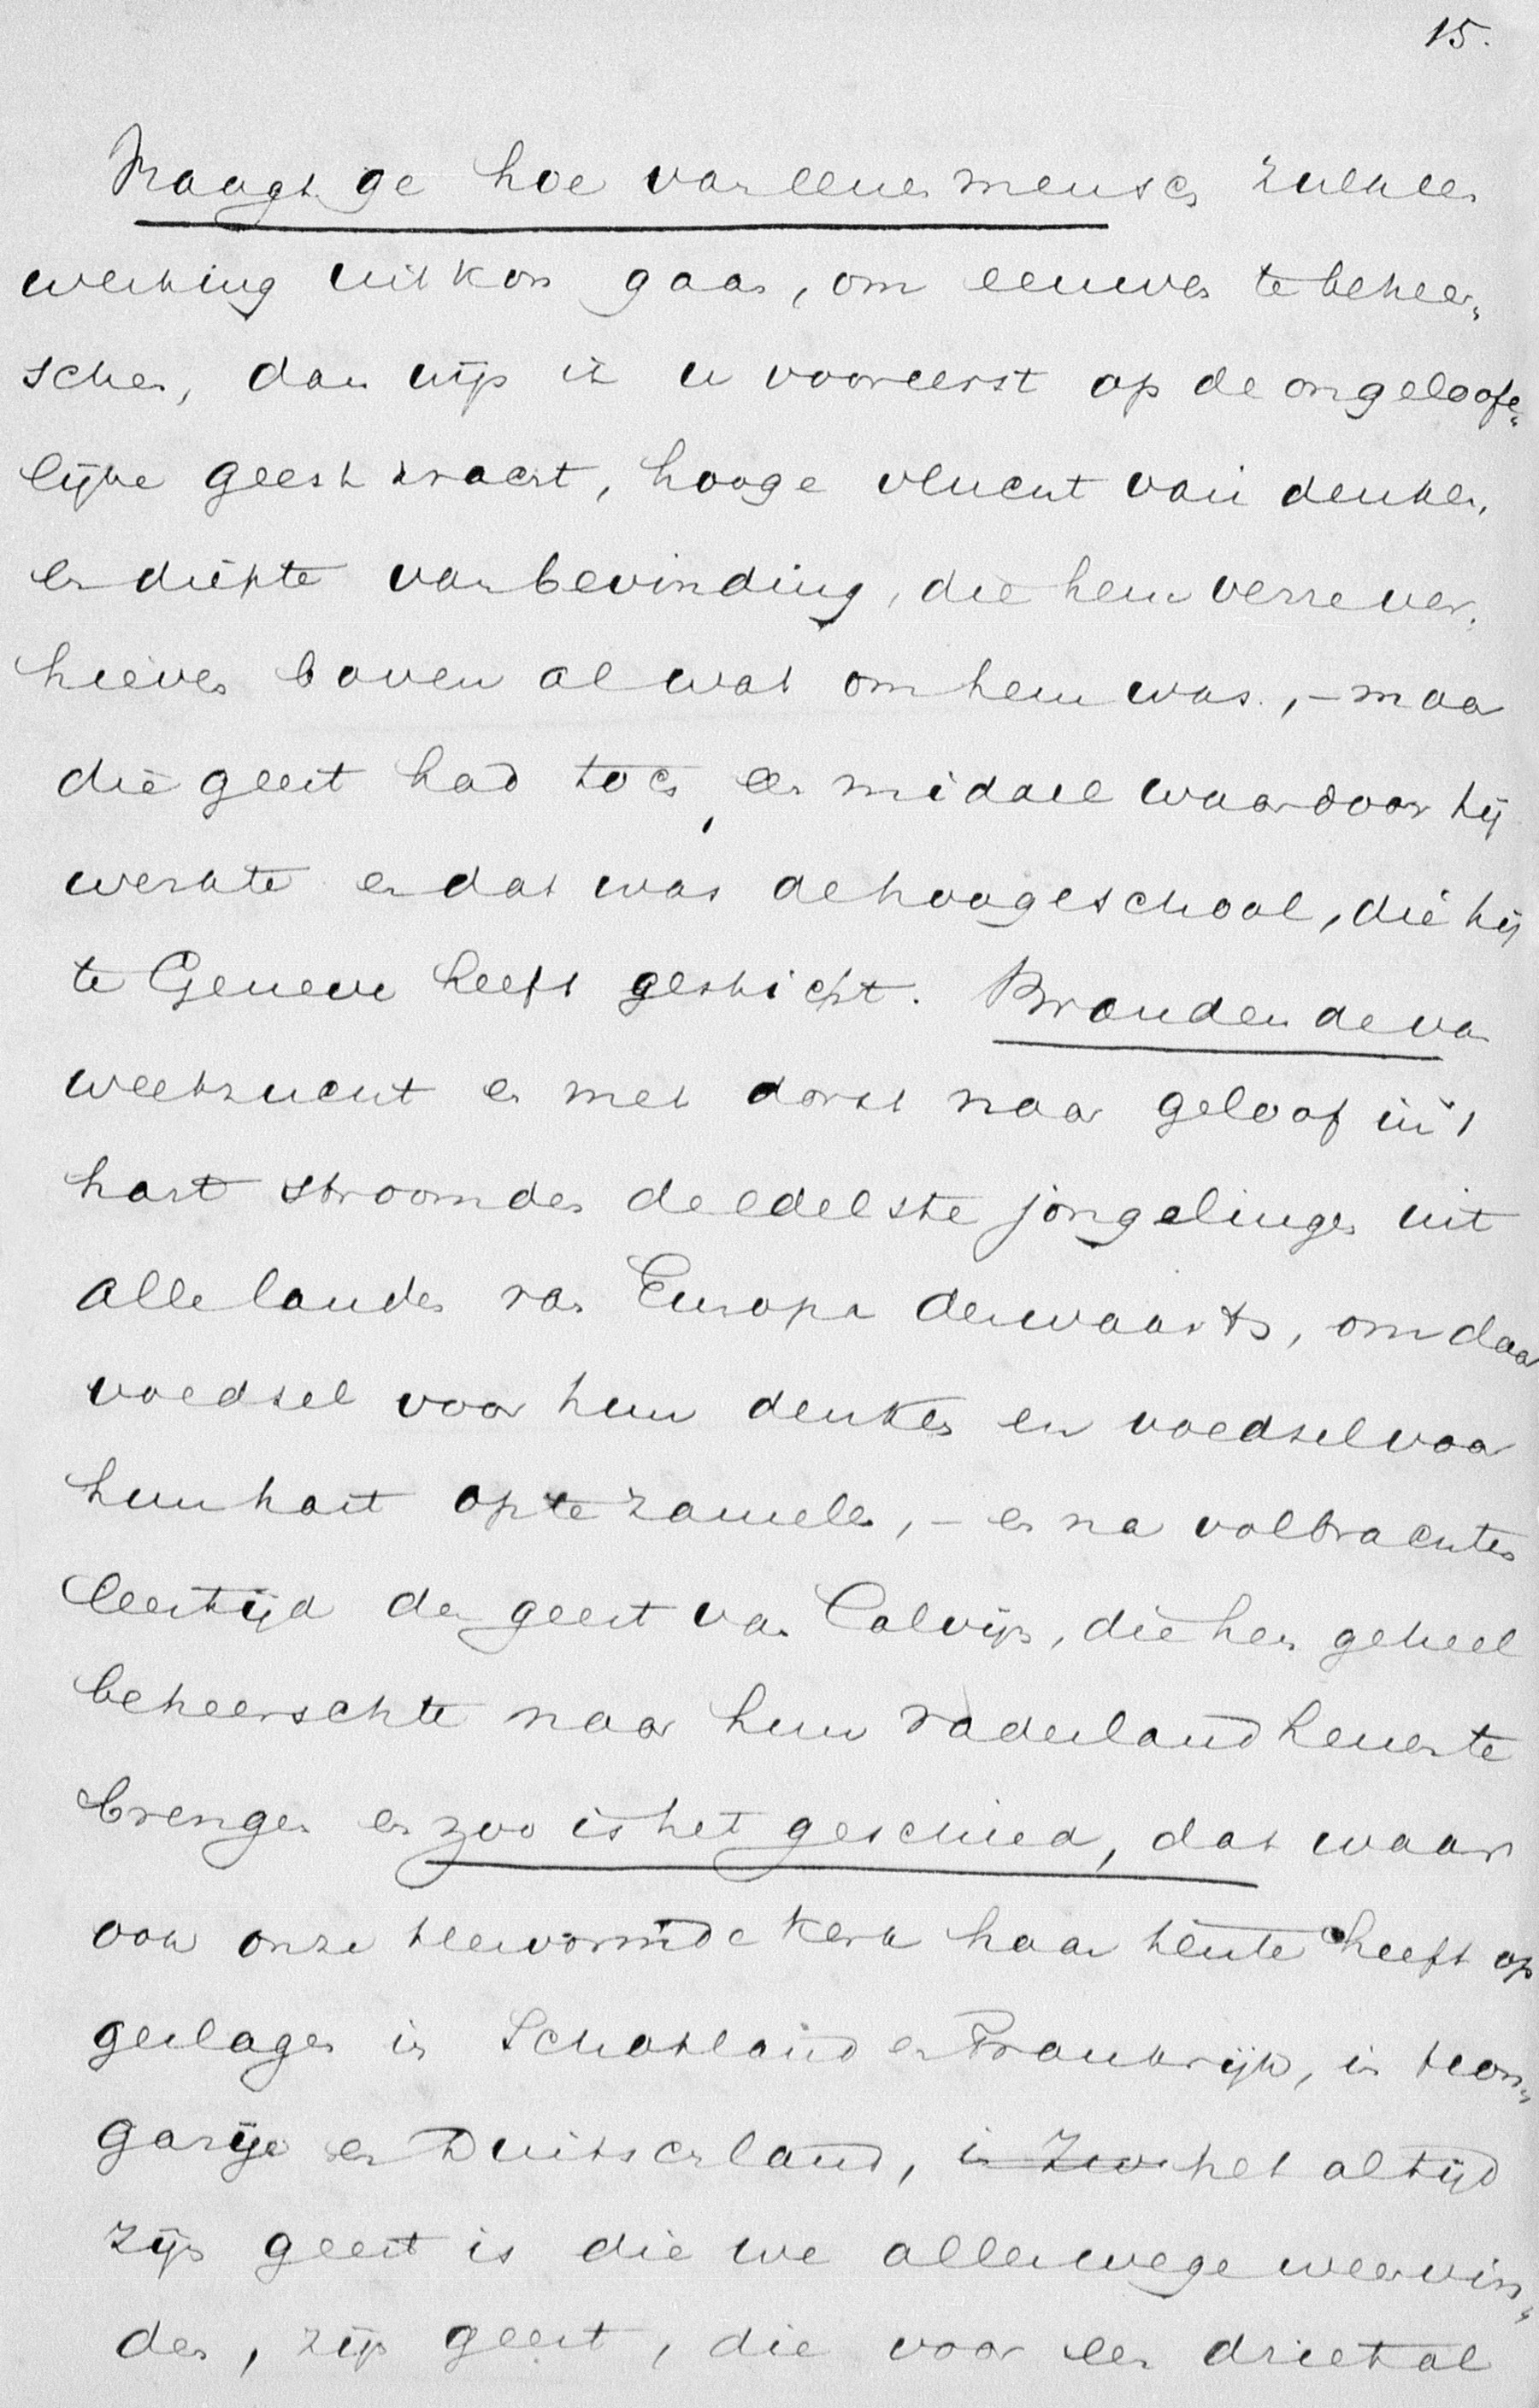 15.
Vraagt ge hoe van eenen mensch zulk een
werking uitkon gaan, om eeuwen te beheer„
schen, dan wijs ik u vooreerst op de ongeloofe„
lijke geestkracht, hooge vlucht van denken,
en diepte van bevinding, die hem verre ver„
hieven boven al wat om hem was, – maar
die geest had toch, een middel waardoor hij
werkte en dat was de hoogeschool, die hij
te Geneve heeft gesticht. Brandende van
weetzucht en met dorst naar geloof in 't
hart stroomden de edelste jongelingen uit
alle landen van Europa derwaarts, om daar
voedsel voor hun denken en voedsel voor
hun hart op te zamelen, – en na volbrachten
leertijd den geest van Calvijn, die hen geheel
beheerschte naar hun vaderland henen te
brengen en zoo is het geschied, dat waar
ook onze Hervormde Kerk haar tente heeft op
geslagen in Schotland en Frankrijk, in Hon„
garije en Duitschland, in Zwi het altijd
zijn geest is die we allerwege weervin„
den, zijn geest, die voor een drietal